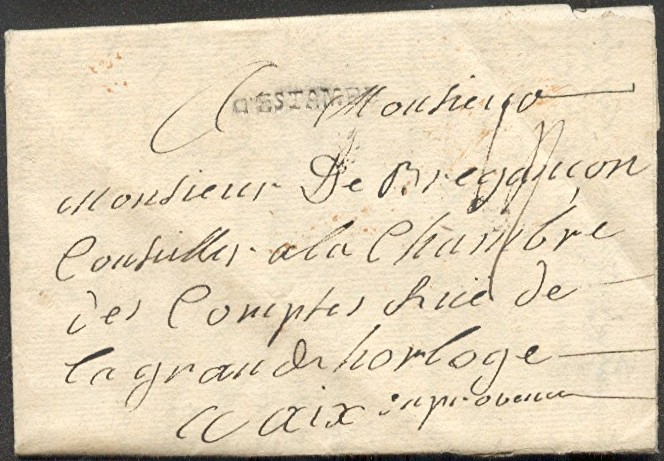 A Monsieur
D'ESTAMPE
Monsieur De Bregançon
Conseiller a la Chambre
des Comptes Rue de
la grande horloge
A aix en provence